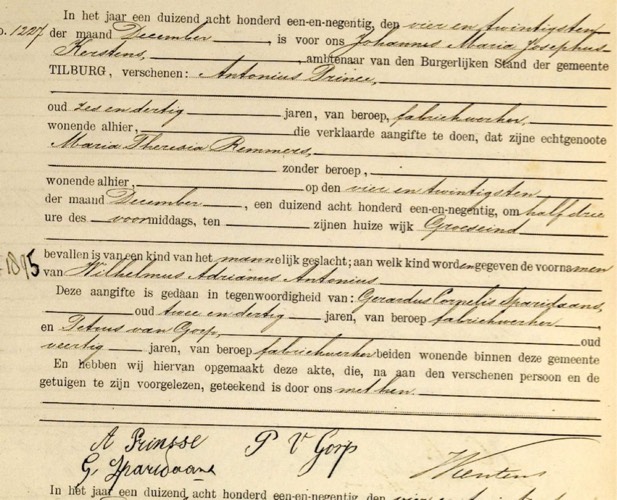 In het jaar een duizend acht honderd een-en-negentig, den vier en twintigsten
o. 1227 der maand December, is voor ons Johannes Maria Josephus
Kerstens, ambtenaar van den Burgerlijken Stand der gemeente
TILBURG, verschenen: Antonius Prince,
oud zes en dertig jaren, van beroep, fabriekwerker,
wonende alhier, die verklaarde aangifte te doen, dat zijne echtgenoote
Maria Theresia Remmers,
zonder beroep,
wonende alhier, op den vier en twintigsten
der maand December, een duizend acht honderd een-en-negentig, om half drie
ure des voormiddags, ten zijnen huize wijk Groeseind
bevallen is van een kind van het mannelijk geslacht; aan welk kind worden gegeven de voornamen
1895 van Wilhelmus Adrianus Antonius
Deze aangifte is gedaan in tegenwoordigheid van: Gerardus Cornelis Sparidaans,
oud twee en dertig jaren, van beroep fabriekwerker
en Petrus van Gorp, oud
veertig jaren, van beroep fabriekwerker beiden wonende binnen deze gemeente
En hebben wij hiervan opgemaakt deze akte, die, na aan den verschenen persoon en de
getuigen te zijn voorgelezen, geteekend is door ons met hen.
A Prinsse P V Gorp
G Sparidaans Kerstens
In het jaar een duizend acht honderd een-en-negentig, den vier en twintigsten